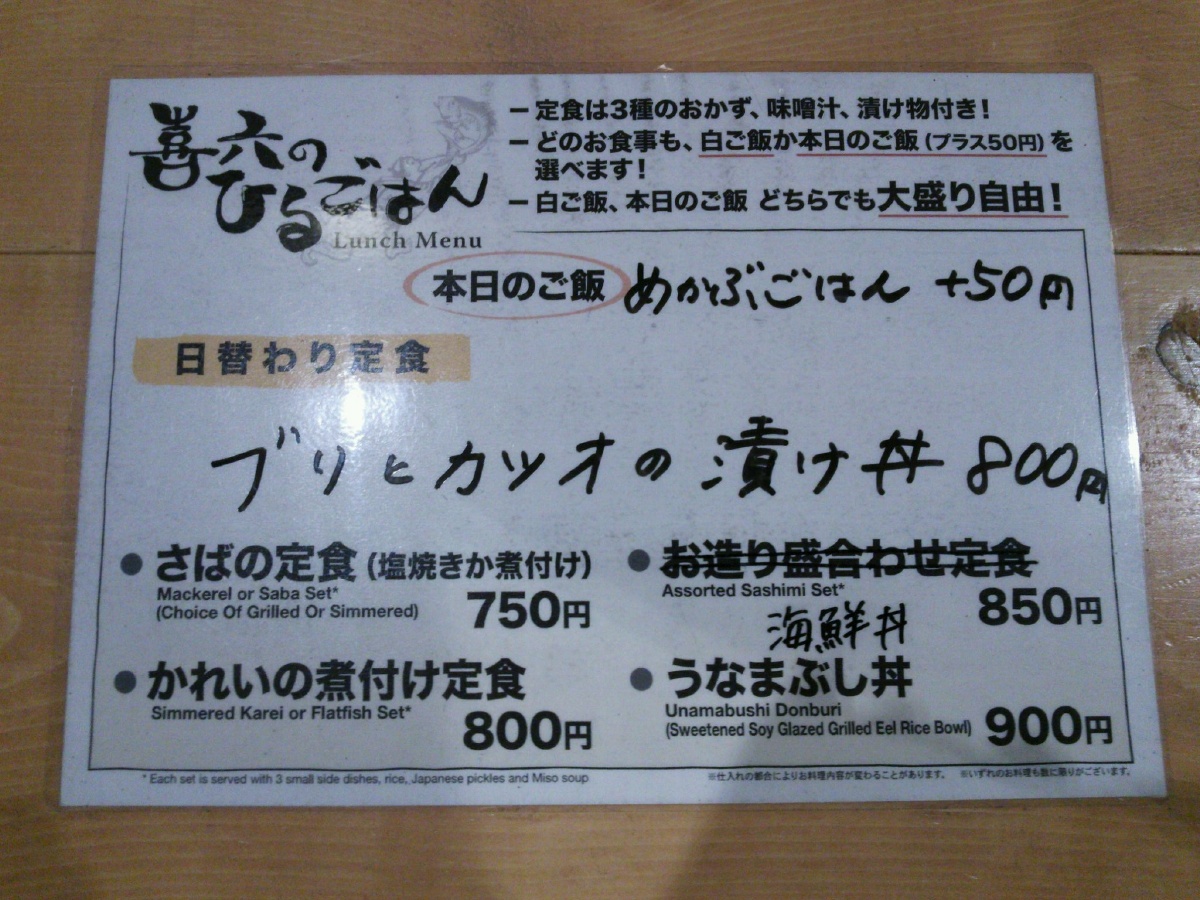 喜六の
ひるごはん
Lunch Menu
– 定食は3種のおかず、味噌汁、漬け物付き！
– どのお食事も、白ご飯か本日のご飯（プラス50円）を
選べます！
– 白ご飯、本日のご飯 どちらでも大盛り自由！
本日のご飯 めかぶごはん +50円
日替わり定食
ブリとカツオの漬け丼 800円
● さばの定食（塩焼きか煮付け）
Mackerel or Saba Set*
(Choice Of Grilled Or Simmered)
750円
● お造り盛合わせ定食
Assorted Sashimi Set*
850円
海鮮丼
● かれいの煮付け定食
Simmered Karei or Flatfish Set*
800円
● うなまぶし丼
Unamabushi Donburi
(Sweetened Soy Glazed Grilled Eel Rice Bowl)
900円
* Each set is served with 3 small side dishes, rice, Japanese pickles and Miso soup
※仕入れの都合によりお料理内容が変わることがあります。 ※いずれのお料理も数に限りがございます。